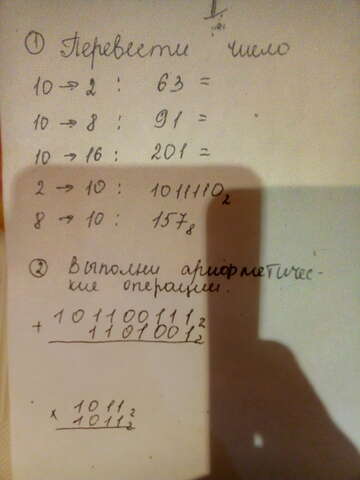 ① Перевести число
10 → 2 : 63 =
10 → 8 : 91 =
10 → 16 : 201 =
2 → 10 : 1011110₂
8 → 10 : 157₈
② Выполни арифметичес-
кие операции.
101100111₂
+ 1101001₂
× 1011₂
1011₂